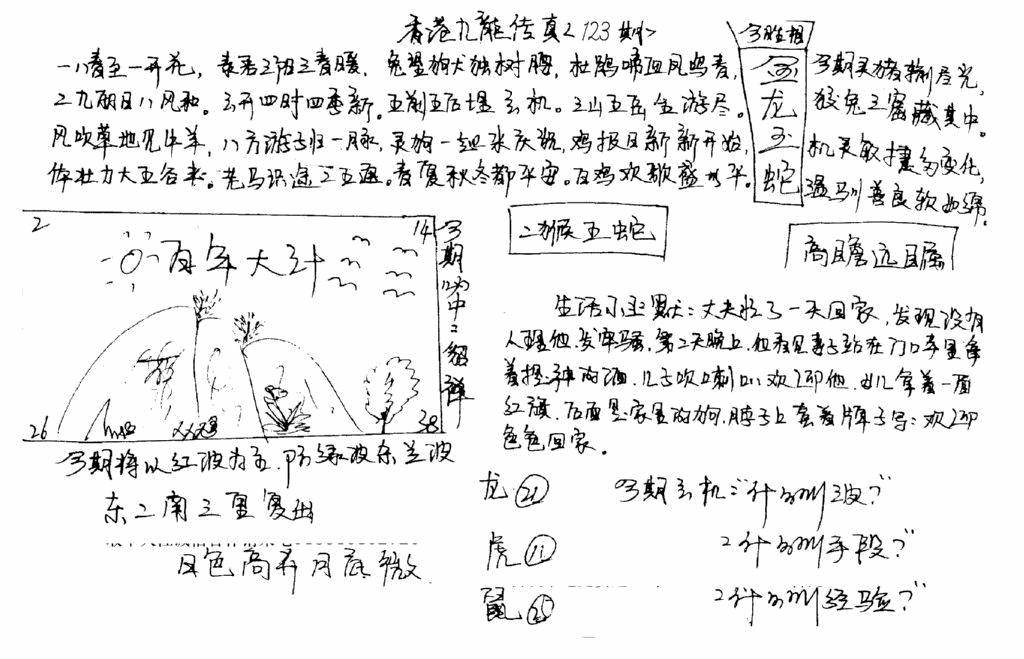 香港九龍传真<123期>
一八春至一开花，
兔望狗犬独树腰，杜鹃啼血凤鸣春，
二九丽日八风和。玄开四时四季新。五前五后堪玄机。三山五岳全游尽。
风吹草地见牛羊，八方游子归一脉，灵狗一起来庆祝，鸡报日新新开始，
体壮力大五谷来。老马识途二五通。春夏秋冬都平安。百鸡欢歌盛太平。
今期灵猪输尽光，
狡兔三窟藏其中。
机灵敏捷多变化，
温马川善良软如绵。
今胜相
金龙玉蛇
2
14
百年大计
26
38
今期
二猴五蛇
高瞻远瞩
生活小幽默：丈夫忙了一天回家，发现没有
人理他，发牢骚，第二天晚上，他看见妻子站在门口手里拿
着提神的酒，儿子吹喇叭欢迎他，女儿拿着一面
红旗，后面是家里的狗，脖子上套着牌子写：欢迎
色色回家。
今期将以红波为主，防绿波杀兰波
东二南三星复出
日色高升月底微
龙 21
虎 11
鼠 25
今期玄机：“什么叫
2什么叫手段？”
2什么叫经验？”